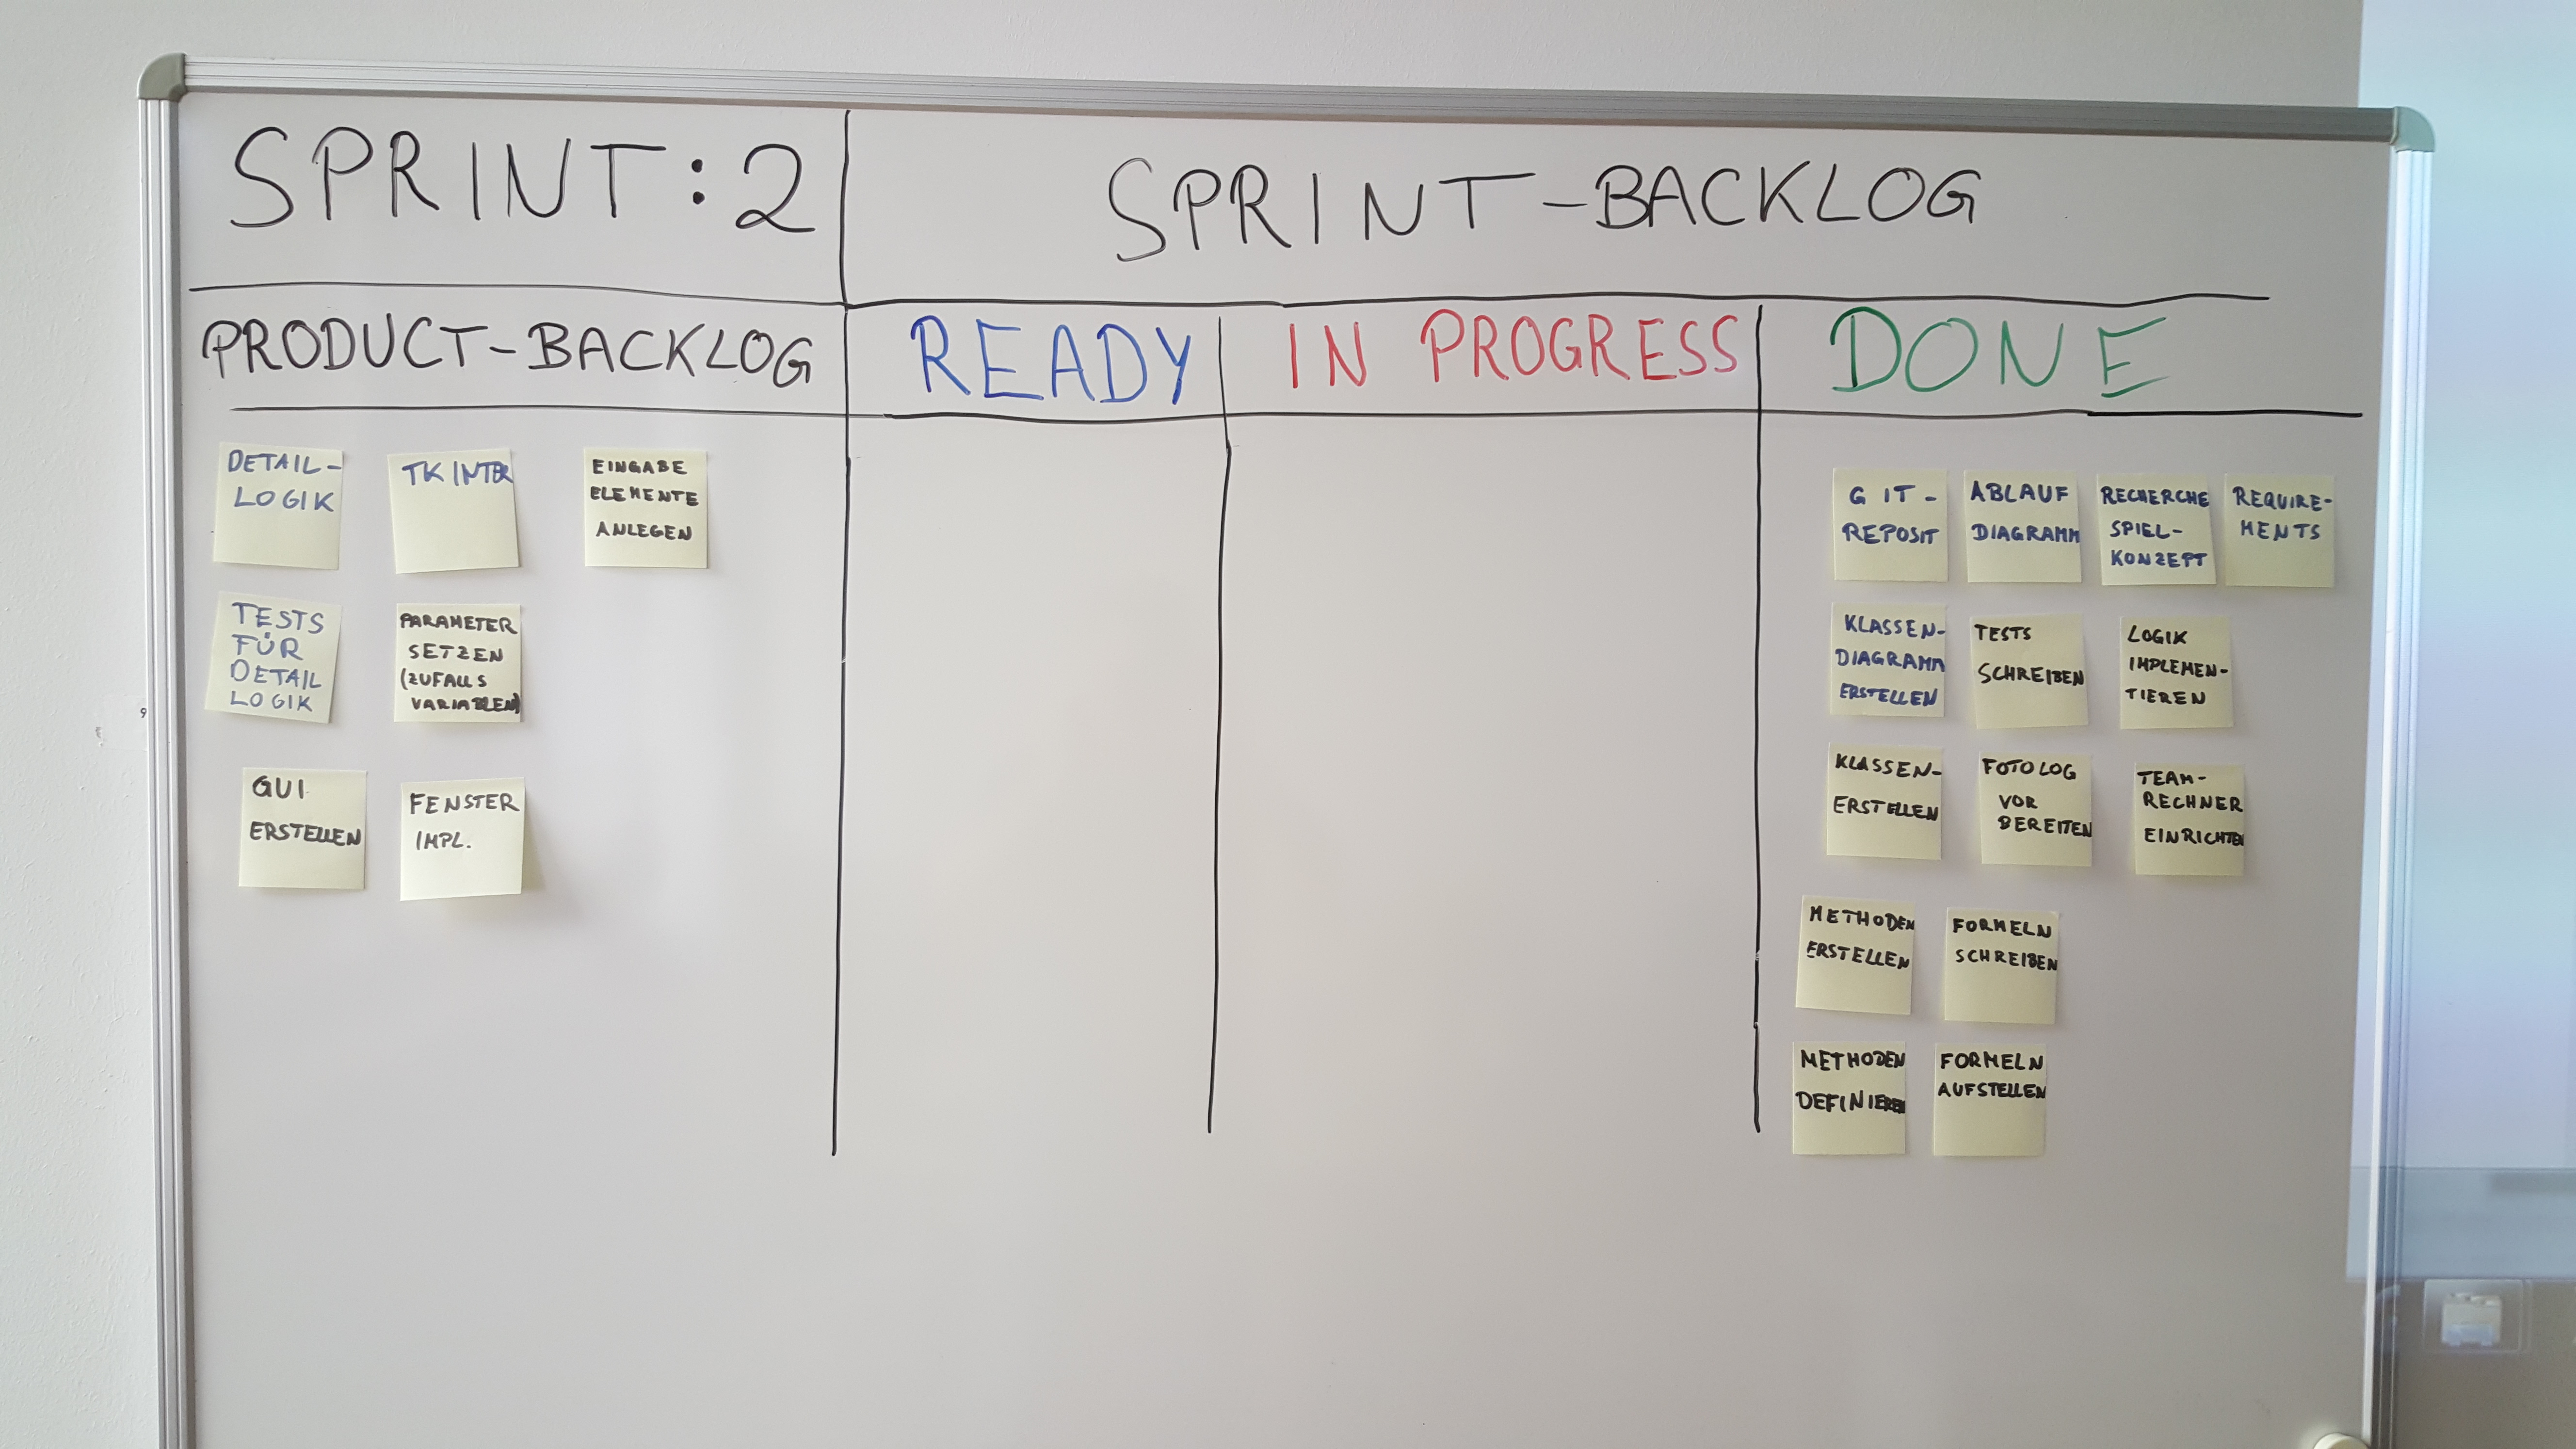 SPRINT: 2
SPRINT-BACKLOG
PRODUCT-BACKLOG
READY
IN PROGRESS
DONE
DETAIL-
LOGIK
TKINTER
EINGABE
ELEMENTE
ANLEGEN
TESTS
FÜR
DETAIL
LOGIK
PARAMETER
SETZEN
(ZUFALLS
VARIABLEN)
GUI
ERSTELLEN
FENSTER
IMPL.
GIT-
REPOSIT
ABLAUF
DIAGRAMM
RECHERCHE
SPIEL-
KONZEPT
REQUIRE-
MENTS
KLASSEN-
DIAGRAMM
ERSTELLEN
TESTS
SCHREIBEN
LOGIK
IMPLEMEN-
TIEREN
KLASSEN-
ERSTELLEN
FOTOLOG
VOR
BEREITEN
TEAM-
RECHNER
EINRICHTEN
METHODEN
ERSTELLEN
FORMELN
SCHREIBEN
METHODEN
DEFINIEREN
FORMELN
AUFSTELLEN